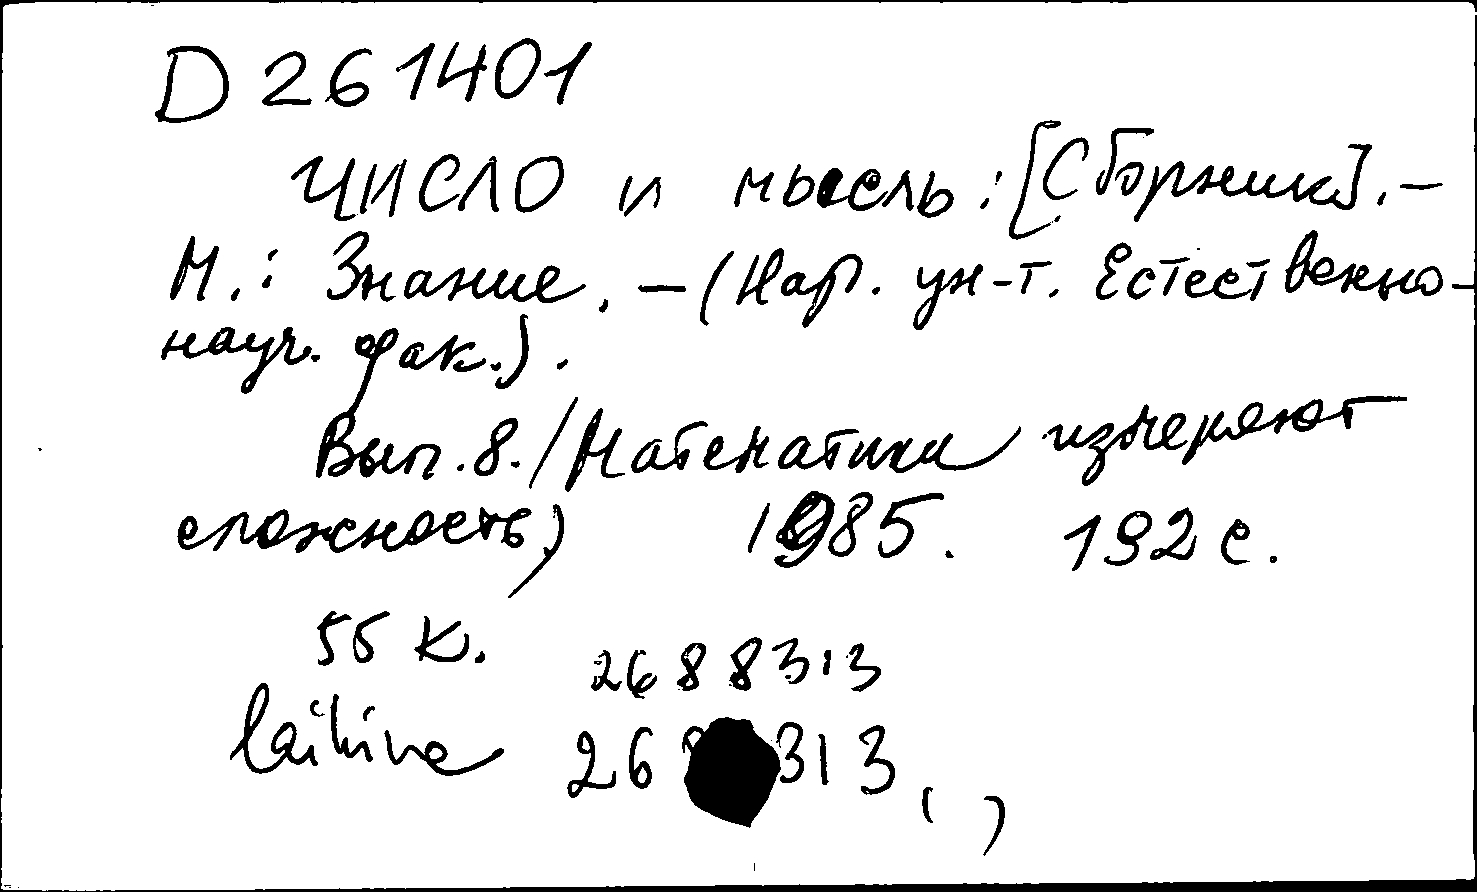 D 261401
ЧИСЛО и мысль : [Сборник]. –
М. : Знание. – (Нар. ун-т. Естественно-
науч. фак.).
Вып. 8. /Математики измеряют
сложность/ 1985. 192 с.
55 к. 2688313
313